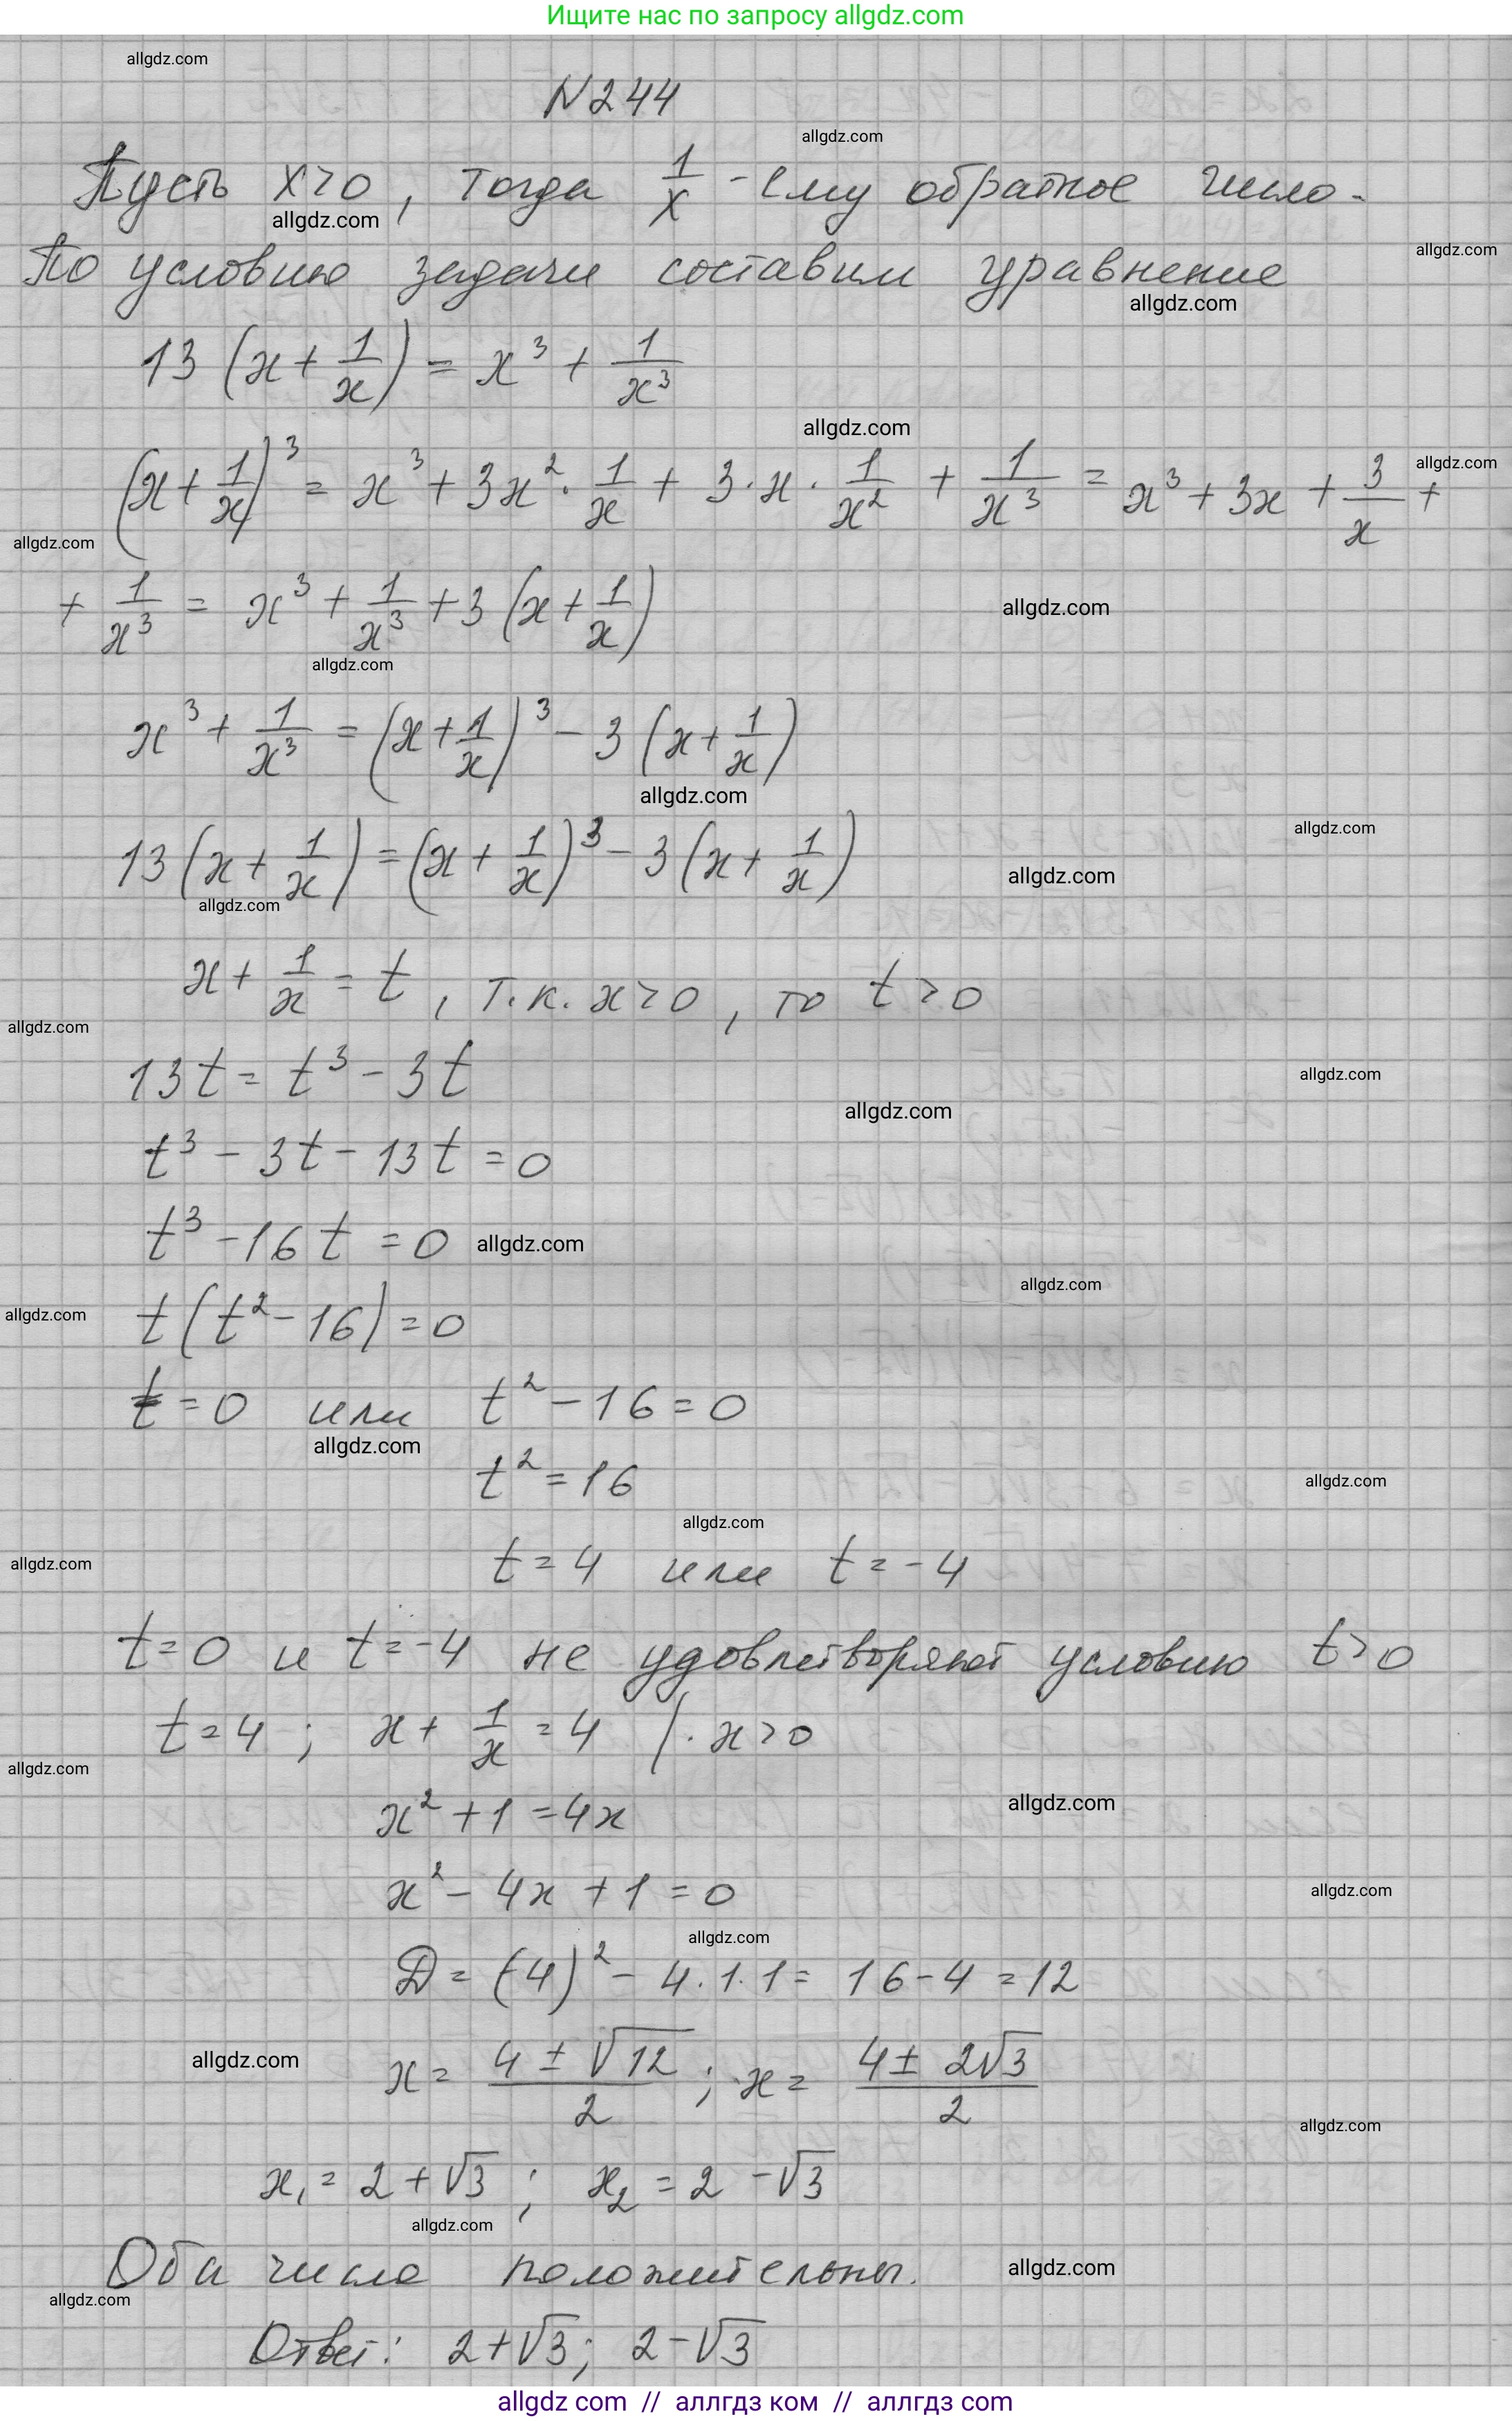 Ищите нас по запросу allgdz.com
allgdz.com
N244
allgdz.com
Пусть x>0, тогда 1/x - ему обратное число.
allgdz.com
allgdz.com
По условию задачи составим уравнение
allgdz.com
13(x + 1/x) = x³ + 1/x³
allgdz.com
allgdz.com
(x + 1/x)³ = x³ + 3x² · 1/x + 3 · x · 1/x² + 1/x³ = x³ + 3x + 3/x +
allgdz.com
+ 1/x³ = x³ + 1/x³ + 3(x + 1/x)
allgdz.com
allgdz.com
x³ + 1/x³ = (x + 1/x)³ - 3(x + 1/x)
allgdz.com
allgdz.com
13(x + 1/x) = (x + 1/x)³ - 3(x + 1/x)
allgdz.com
allgdz.com
x + 1/x = t, т.к. x>0, то t>0
allgdz.com
13t = t³ - 3t
allgdz.com
allgdz.com
t³ - 3t - 13t = 0
t³ - 16t = 0
allgdz.com
allgdz.com
t(t² - 16) = 0
allgdz.com
t = 0 или t² - 16 = 0
allgdz.com
t² = 16
allgdz.com
allgdz.com
t = 4 или t = -4
allgdz.com
t = 0 и t = -4 не удовлетворяют условию t>0
t = 4; x + 1/x = 4 | · x>0
allgdz.com
x² + 1 = 4x
allgdz.com
x² - 4x + 1 = 0
allgdz.com
allgdz.com
D = (-4)² - 4·1·1 = 16 - 4 = 12
allgdz.com
x = (4 ± √12)/2; x = (4 ± 2√3)/2
allgdz.com
x₁ = 2 + √3; x₂ = 2 - √3
allgdz.com
Оба числа положительны.
allgdz.com
allgdz.com
Ответ: 2+√3; 2-√3
allgdz com // аллгдз ком // аллгдз com